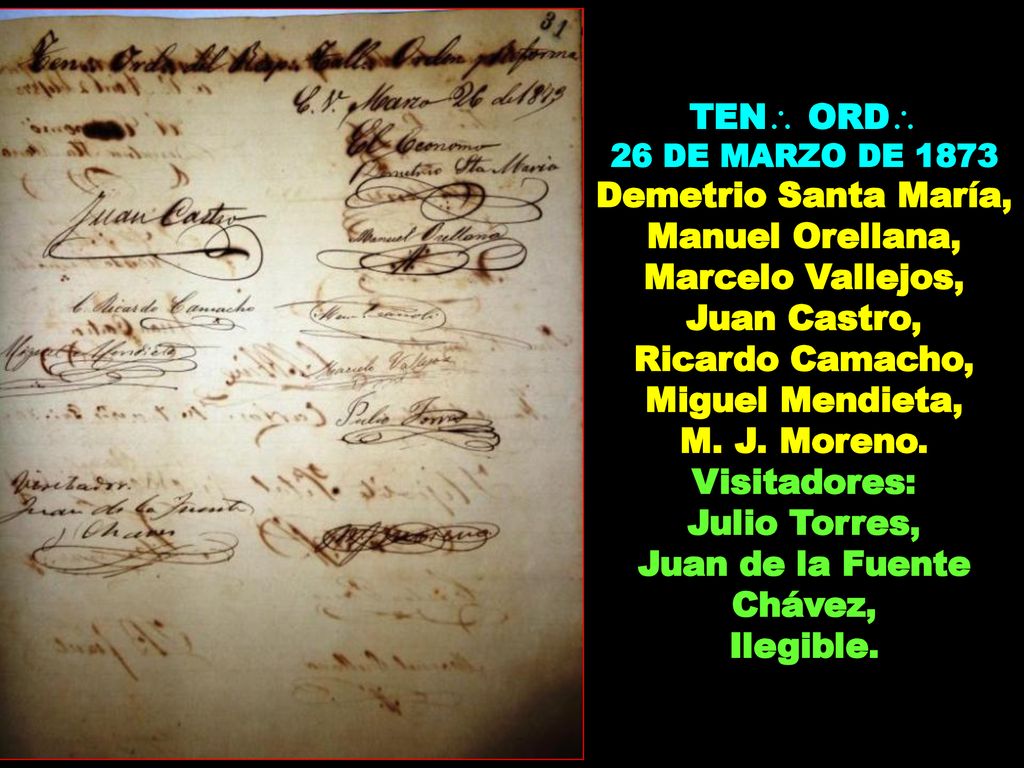 31
Ten∴ Ord∴ del Resp∴ Tall∴ Orden y Reforma
E. V. Marzo 26 de 1873
El Economo
Demetrio Sta Maria
Juan Castro
Manuel Orellana
C. Ricardo Camacho
Miguel Mendieta
Marcelo Vallejos
Julio Torres
Visitador
Juan de la Fuente
Chavez
TEN∴ ORD∴
26 DE MARZO DE 1873
Demetrio Santa María,
Manuel Orellana,
Marcelo Vallejos,
Juan Castro,
Ricardo Camacho,
Miguel Mendieta,
M. J. Moreno.
Visitadores:
Julio Torres,
Juan de la Fuente
Chávez,
Ilegible.